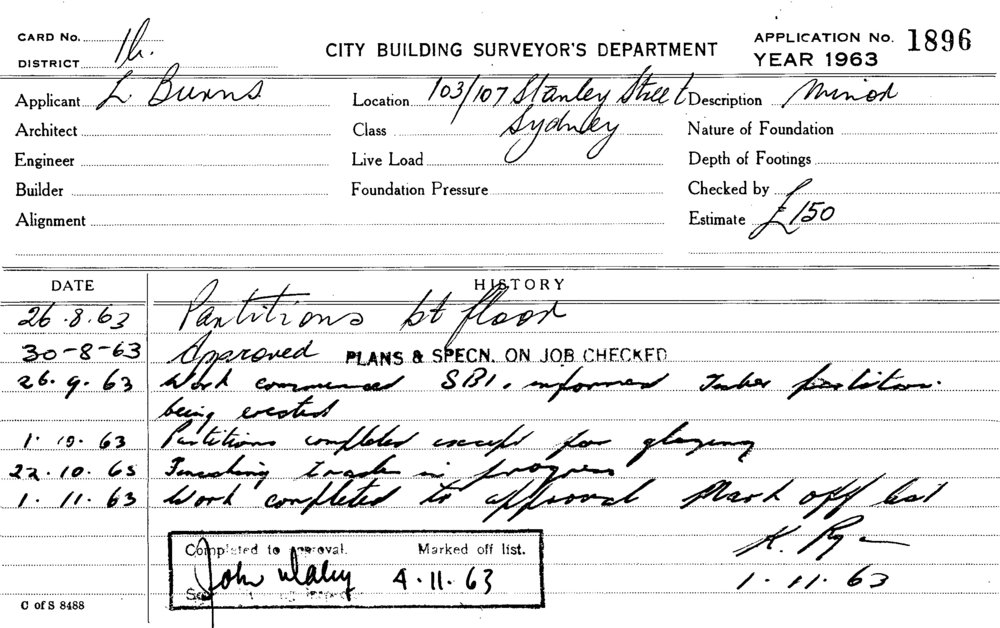 CARD No. 1h.
DISTRICT
CITY BUILDING SURVEYOR'S DEPARTMENT
APPLICATION No. 1896
YEAR 1963
Applicant L Burns
Location 103/107 Stanley Street
Sydney
Description Minor
Architect
Class
Nature of Foundation
Engineer
Live Load
Depth of Footings
Builder
Foundation Pressure
Checked by
Alignment
Estimate £150
DATE HISTORY
26.8.63 Partitions 1st floor
30-8-63 Approved PLANS & SPECN. ON JOB CHECKED
26.9.63 Work commenced SBI. informed Timber partitions
being erected
1.10.63 Partitions completed except for glazing
22.10.63 Finishing trades in progress
1.11.63 Work completed to approval Mark off list
K. Ryan
1.11.63
Completed to approval. Marked off list.
John Daley 4.11.63
C of S 8488